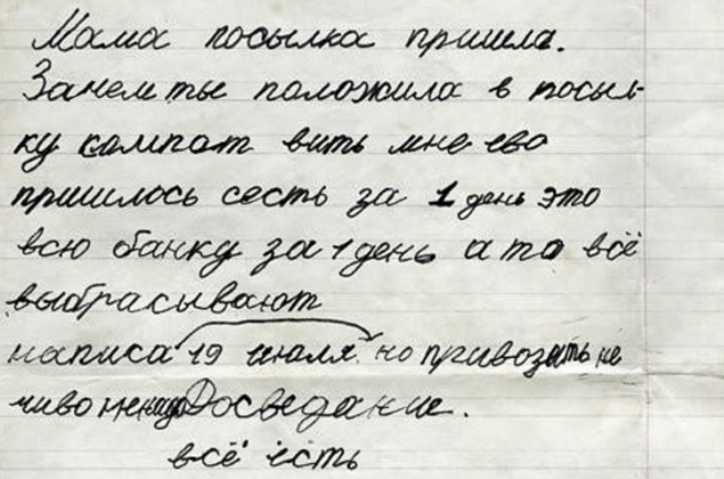 Мама посылка пришла.
Зачем ты положила в посыл-
ку компот вить мне ево
пришлось сесть за 1 день это
всю банку за 1 день а то всё
выбрасывают
написа 19 июля. но привозить не
чиво ненадо Досведание.
всё есть